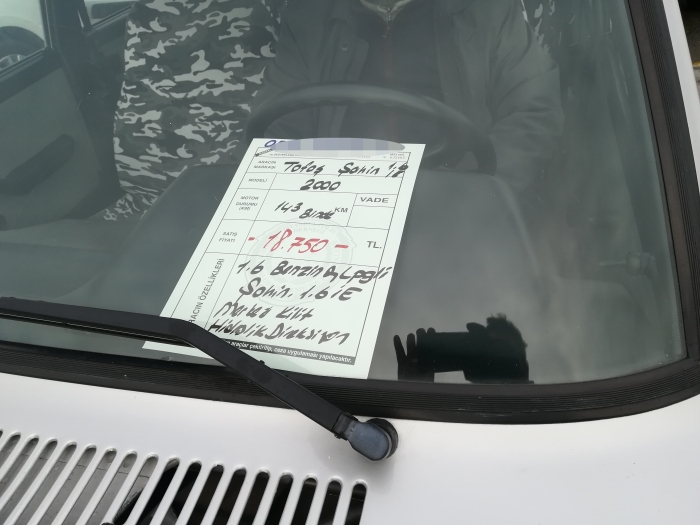 ARACIN MARKASI Tofaş Şahin 1.6 İE
MODELİ 2000
MOTOR DURUMU (KM) 143 Binde KM VADE
SATIŞ FİYATI - 18.750 - TL.
ARACIN ÖZELLİKLERİ
1.6 Benzin Lpgli
Şahin. 1.6 iE
Merkez Kilit
Hidrolik Direksiyon
araçlar çektirilip, ceza uygulaması yapılacaktır.